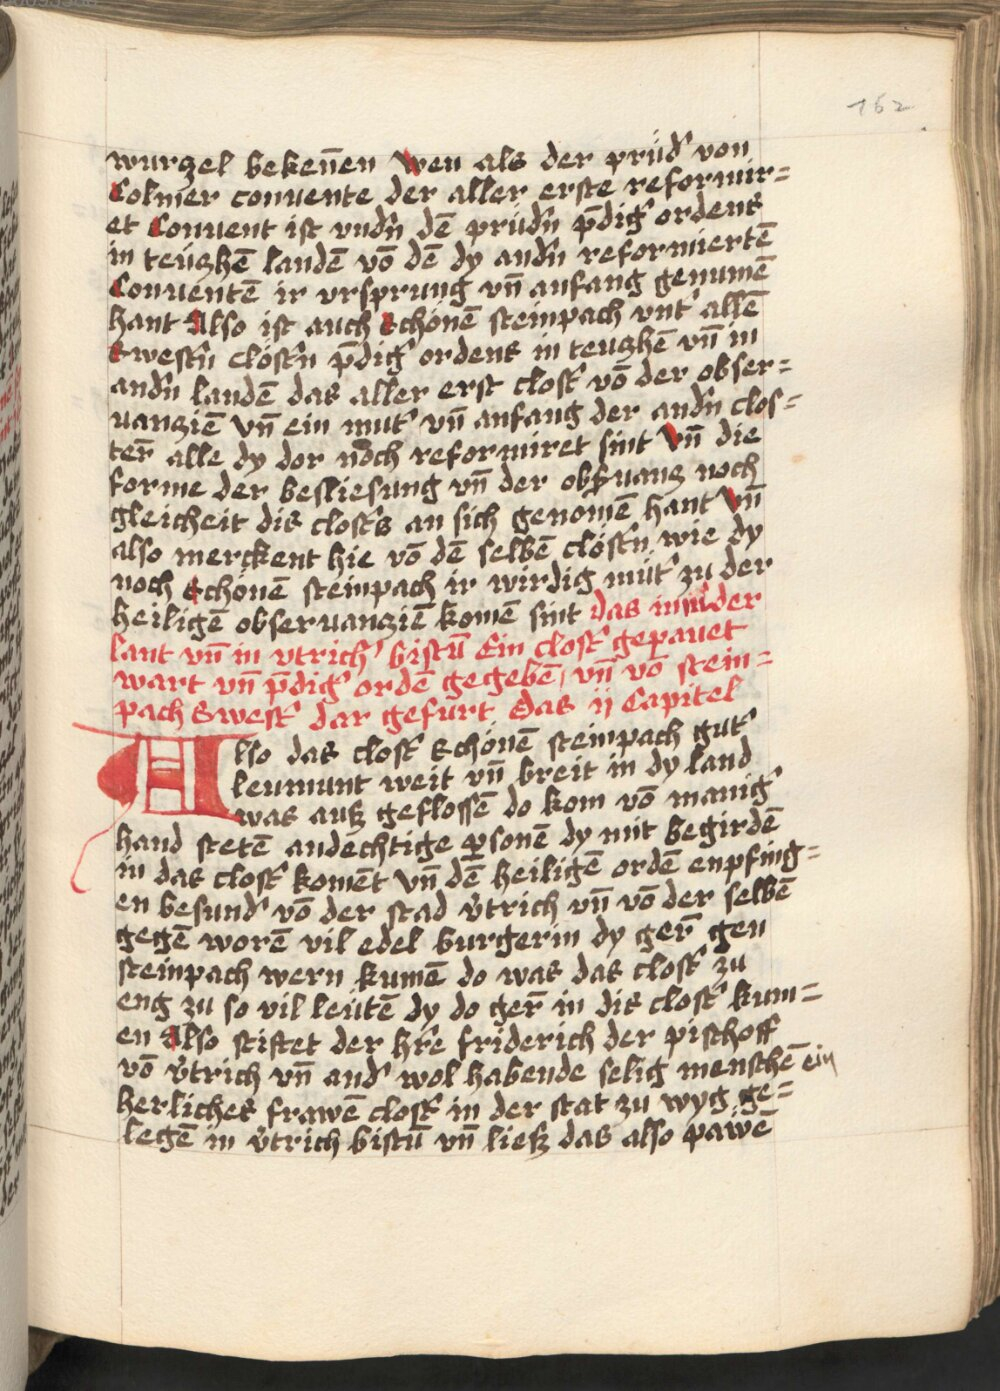 162
wurzel bekeñen Wen als der prüd᷒ von
Colmer conuente der aller erste reformir=
et Conuent ist vnd᷒n dē prüd᷒n p̄dig᷒ ordens
in teüzhē landē vō dē dy and᷒n reformiertē
Conuentē ir vrsprung vn̄ anfang genumē
hant Also ist auch Schönē steinpach vnt᷒ allē
Swest᷒n clöst᷒n p̄dig᷒ ordens in teuzhē vn̄ in
and᷒n landē das aller erst clost᷒ vō der obser=
uanziē vn̄ ein mut᷒ vn̄ anfang der and᷒n clos=
ter̄ alle dy dor noch reformiret sint Vn̄ die
forme der besliesung vn̄ der obs̄uanz noch
gleicheit dis clost᷒s an sich genom̄ē hant Vn̄
also merckent hie vō dē selbē clöst᷒n wie dy
noch Schönē steinpach ir wirdig müt᷒ zu der
heiligē obseruanziē komē sint das in nid᷒der
lant vn̄ in vtrich᷒ bistū Ein clost᷒ gepauet
wart vn̄ p̄dig᷒ ordē gegebē, vn̄ vō stein=
pach Swest᷒ dar gefurt Das ij Capitel
Also das clost᷒ Schönē steinpach gut᷒
leumunt weit vn̄ breit in dy land
was auß geflossē do kom vō manig᷒
hand stetē andechtige ꝑsonē dy mit begirdē
in das clost᷒ komēt Vn̄ dē heiligē ordē enpfing=
en besund᷒ vō der stad v̈trich vn̄ vō der selbē
gegē worē vil edel burgerin dy ger̄ gen
steinpach wern kumē do was das clost᷒ zu
eng zu so vil leütē dy do ger̄ in dis clost᷒ kum=
en Also stiftet der hr̄e friderich der pischoff
vō v̈trich vn̄ and᷒ wol habende selig menschē ein
herliches frawē clost᷒ in der stat zu wyg ge=
legē in v̈trich bistū vn̄ ließ das also pawē